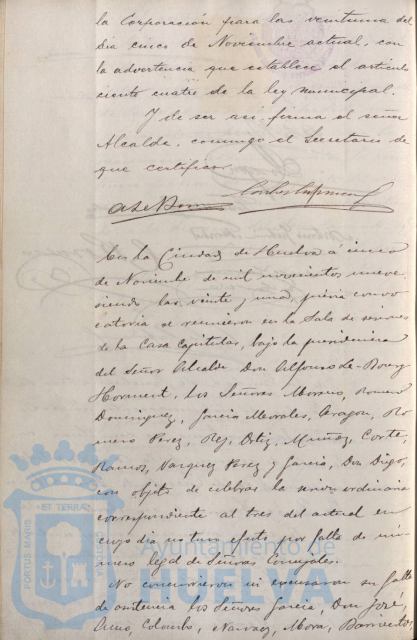 la Corporación para las veintiuna del
dia cinco de Noviembre actual, con
la advertencia que establece el artículo
ciento cuatro de la ley municipal.
Y de ser así firma el señor
Alcalde, conmigo el Secretario de
que certifico.
En la Ciudad de Huelva á cinco
de Noviembre de mil novecientos nueve
siendo las veinte y una, prévia convo
catoria se reunieron en la Sala de sesiones
de la Casa Capitular, bajo la presidencia
del Señor Alcalde Don Alfonso Le-Bourg
los Señores Moreno, Romero
Dominguez, Garcia Morales, Aragon, Ro
mero Perez, Rey, Ortiz, Muñoz, Corte,
Ramos, Vazquez Perez y Garcia, Don Diego,
con objeto de celebrar la sesion ordinaria
correspondiente al tres del actual en
cuyo dia no tuvo efecto por falta de nú
mero legal de Señores Concejales.
No concurrieron ni excusaron su falta
de asistencia los Señores Garcia, Don José,
Colombo, Narvaez, Mora, Barrientos,
PORTUS MARIS
ET TERRAE
CUSTODIA
Ayuntamiento de
HUELVA